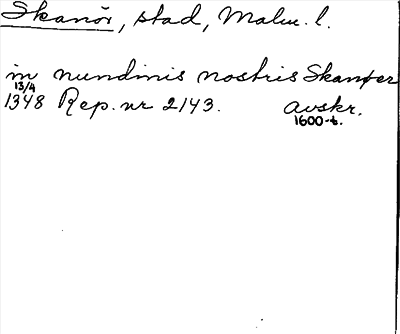 Skanör, stad, Malm. l.
in nundinis nostris Skanøer
13/4
1348 Rep. nr 2143. avskr.
1600-t.